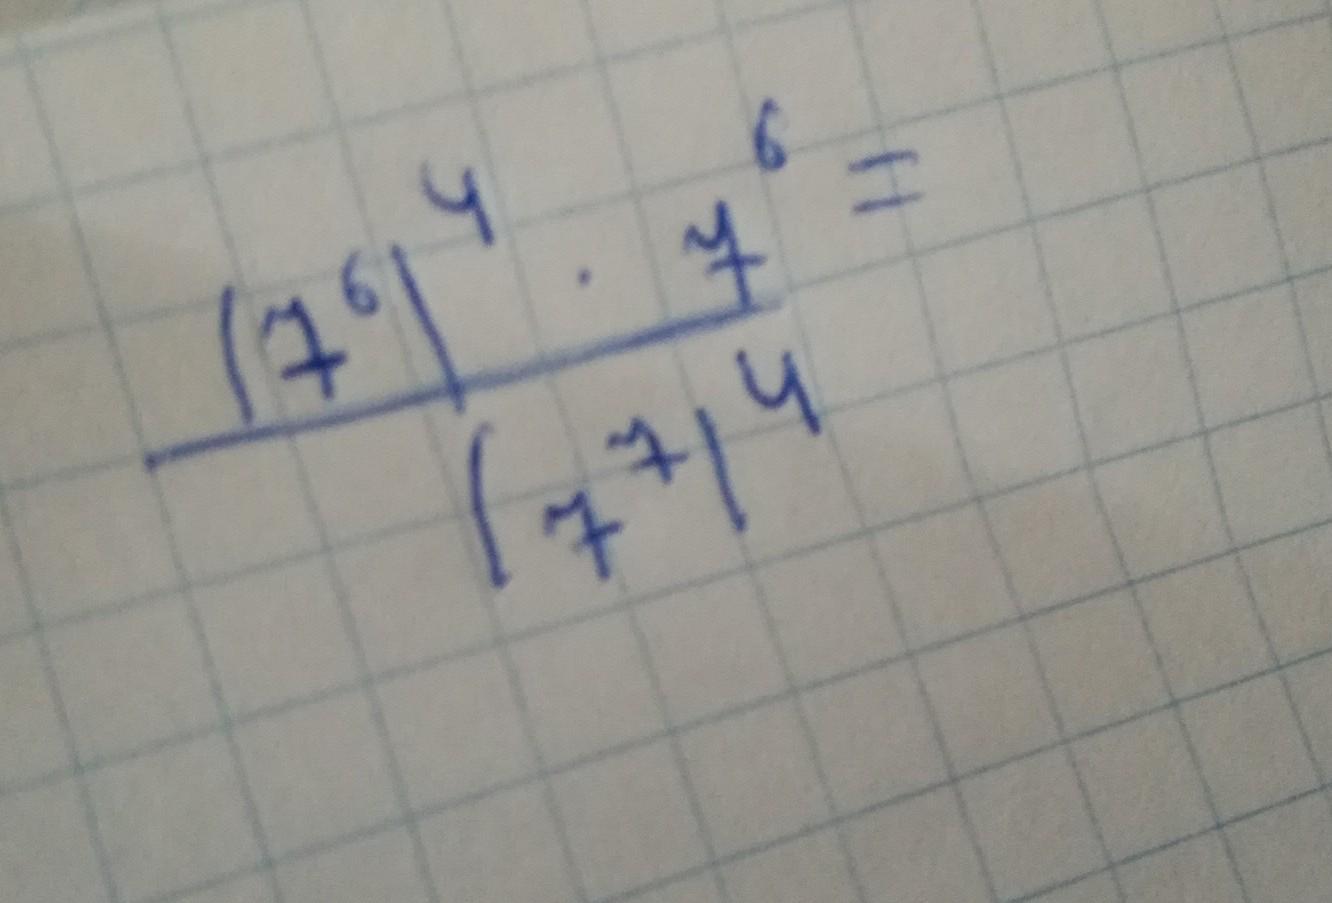 (7⁶)⁴ · 7⁶ =
(7⁷)⁴